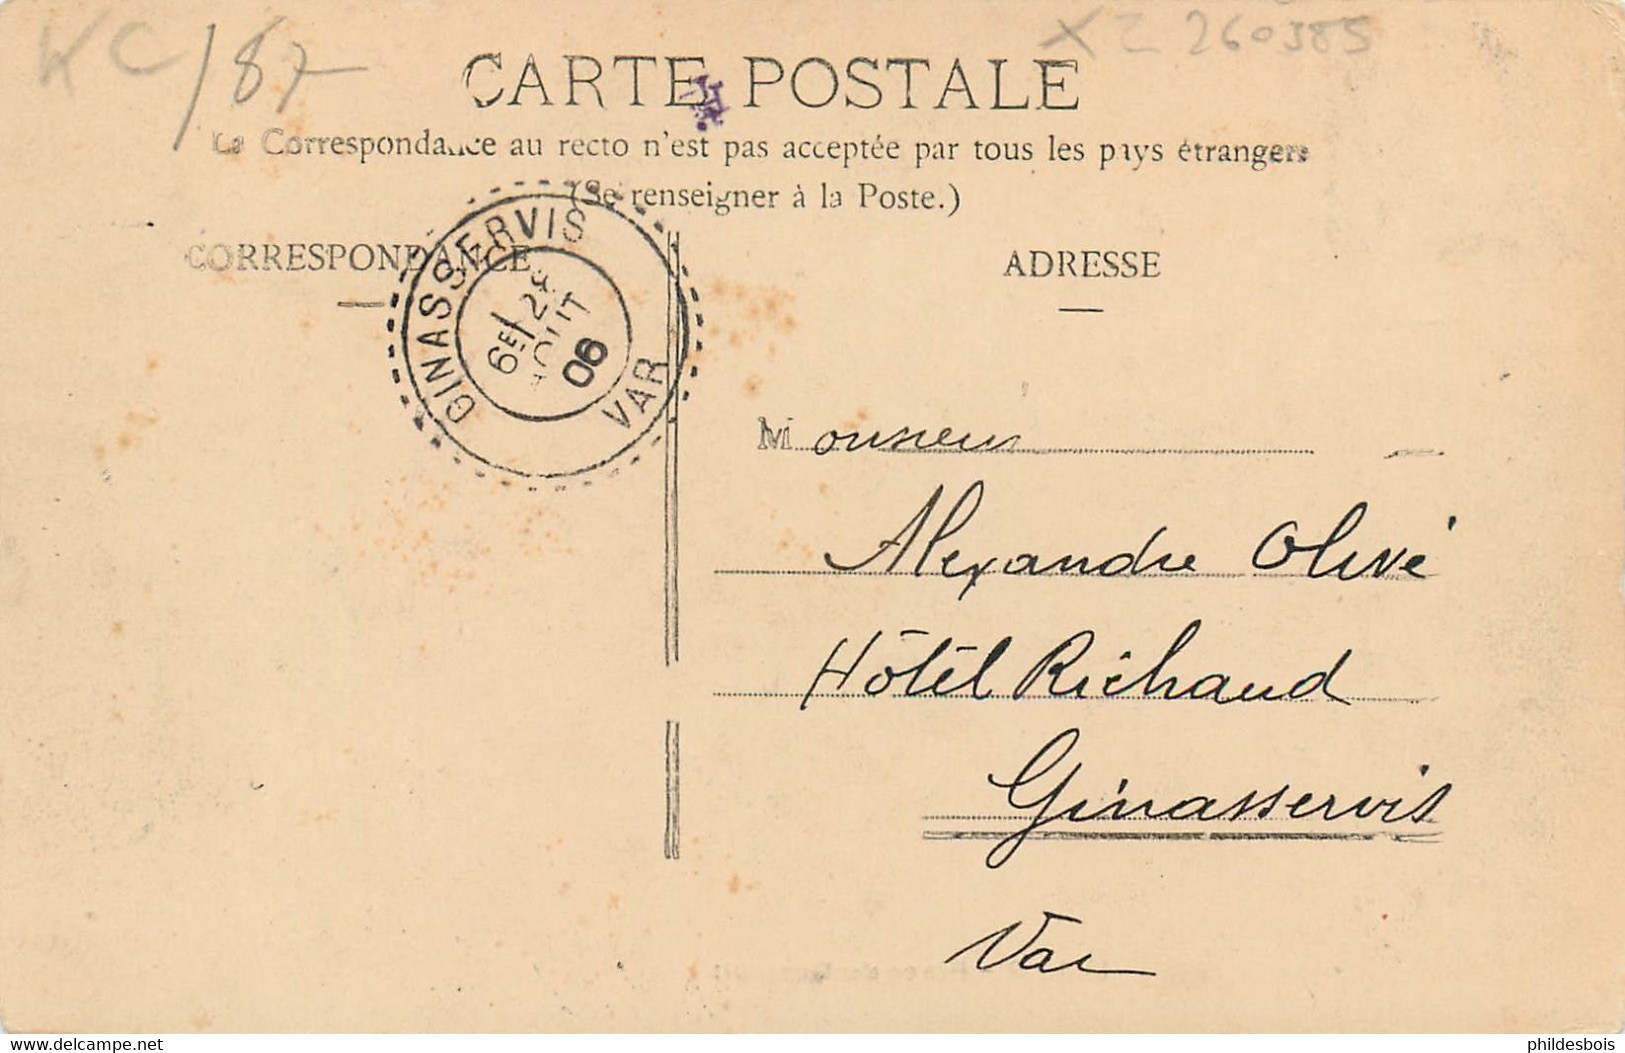 KC/87
XZ 260385
CARTE POSTALE
La Correspondance au recto n'est pas acceptée par tous les pays étrangers
(Se renseigner à la Poste.)
CORRESPONDANCE
ADRESSE
GINASSERVIS
6E
AOUT
06
VAR
Monsieur
Alexandre Olivé
Hôtel Richaud
Ginasservis
Var
www.delcampe.net
phildesbois